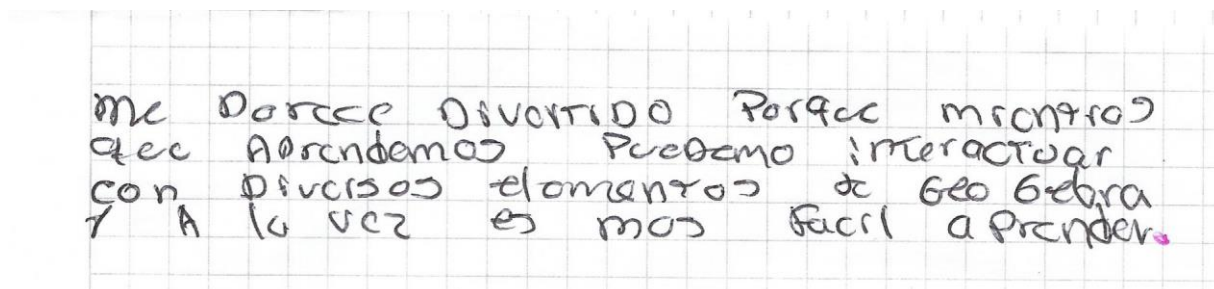 me Parece DIVERTIDO Porque mientras
que Aprendemos Puedemo interactuar
con Diversos elementos de Geo Gebra
y A la vez es mas facil aprender.